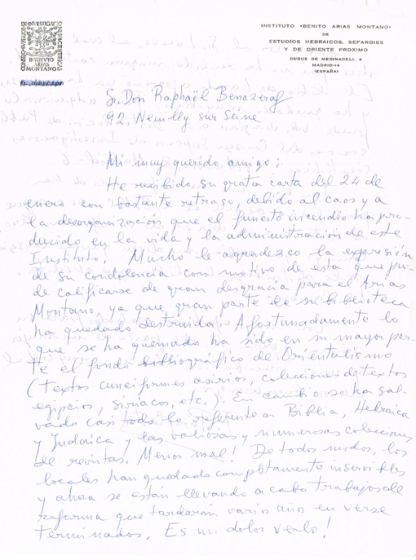 INSTITUTO «BENITO ARIAS MONTANO»
DE
ESTUDIOS HEBRAICOS, SEFARDIES
Y DE ORIENTE PROXIMO
DUQUE DE MEDINACELI, 4
MADRID-14
(ESPAÑA)
INSTITUTO
ARIAS
MONTANO
S. Don Raphaël Benazeraf
92, Neuilly sur Seine
Mi muy querido amigo:
He recibido su grata carta del 24 de
enero con bastante retraso, debido al caos y a
la desorganización que el funesto incendio ha pro-
ducido en la vida y la administración de este
Instituto. Mucho le agradezco la expresión
de su condolencia con motivo de esta que pue-
de calificarse de gran desgracia para el Arias
Montano, ya que gran parte de su biblioteca
ha quedado destruida. Afortunadamente lo
que se ha quemado ha sido en su mayor par-
te el fondo bibliográfico de Orientalismo
(textos cuneiformes asirios, colecciones de textos
egipcios, siriacos, etc.). En cambio se ha sal-
vado casi todo lo referente a Biblia, Hebraica
y Judaica y las valiosas y numerosas colecciones
de revistas. Menos mal! De todos modos, los
locales han quedado completamente inservibles
y ahora se están llevando a cabo trabajos de
reforma que tardarán varios años en verse
terminados. Es un dolor verlo!